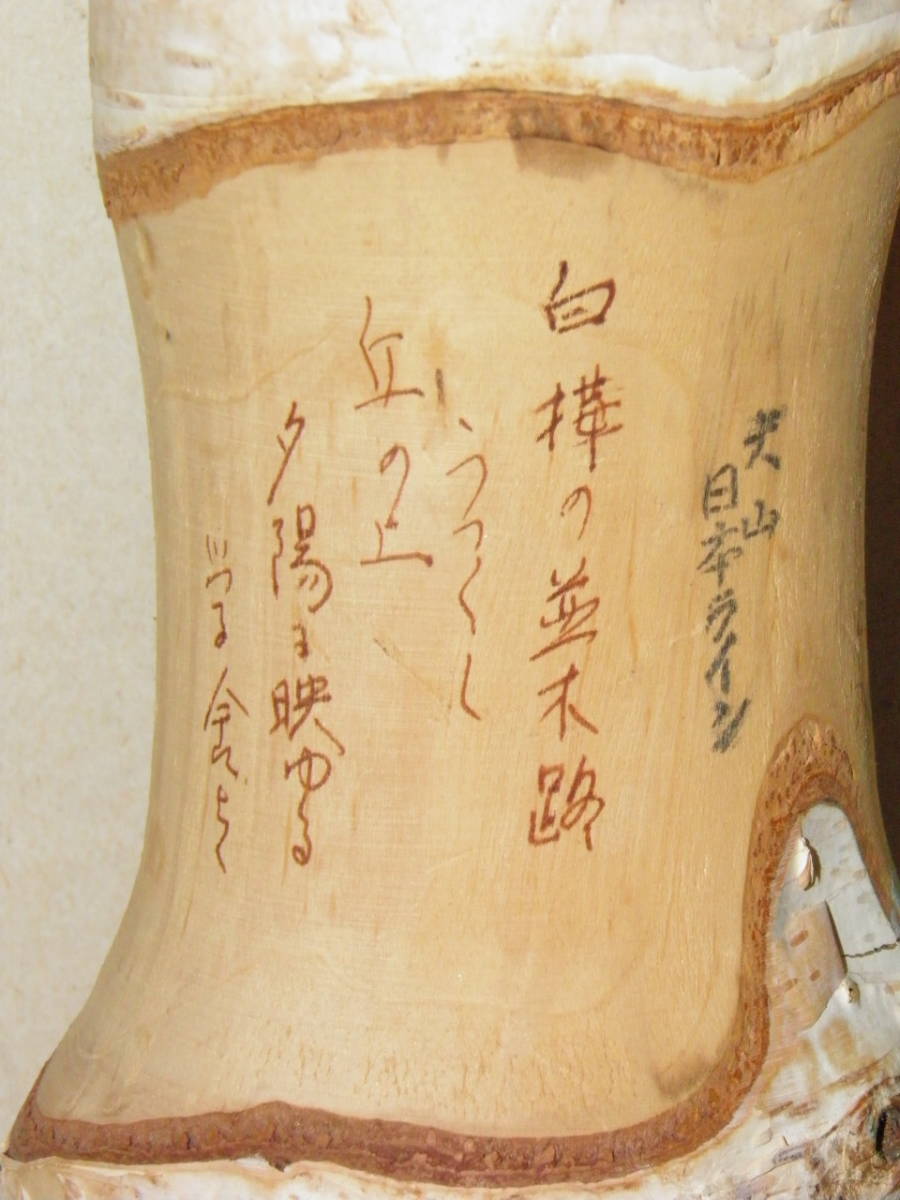 犬山
日本ライン
白樺の並木路
うつくし
丘の上
夕陽に映ゆる